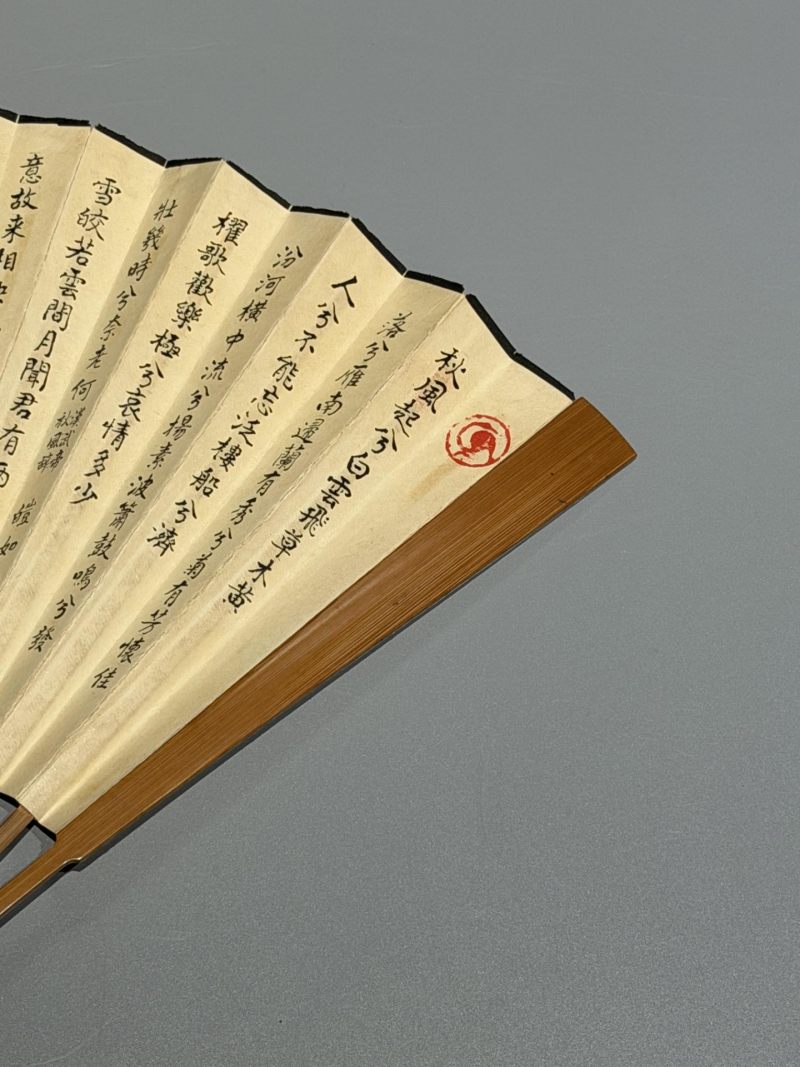 秋風起兮白雲飛草木黄
落兮雁南蘭有秀兮菊有芳懷佳
人兮不能忘泛樓船兮濟
汾河橫中流兮揚素波簫鼓鳴兮發
櫂歌歡樂極兮哀情多少
壯幾時兮奈老何
漢武帝
秋風辭
皚如
雪皎若雲間月聞君有兩
意故来相